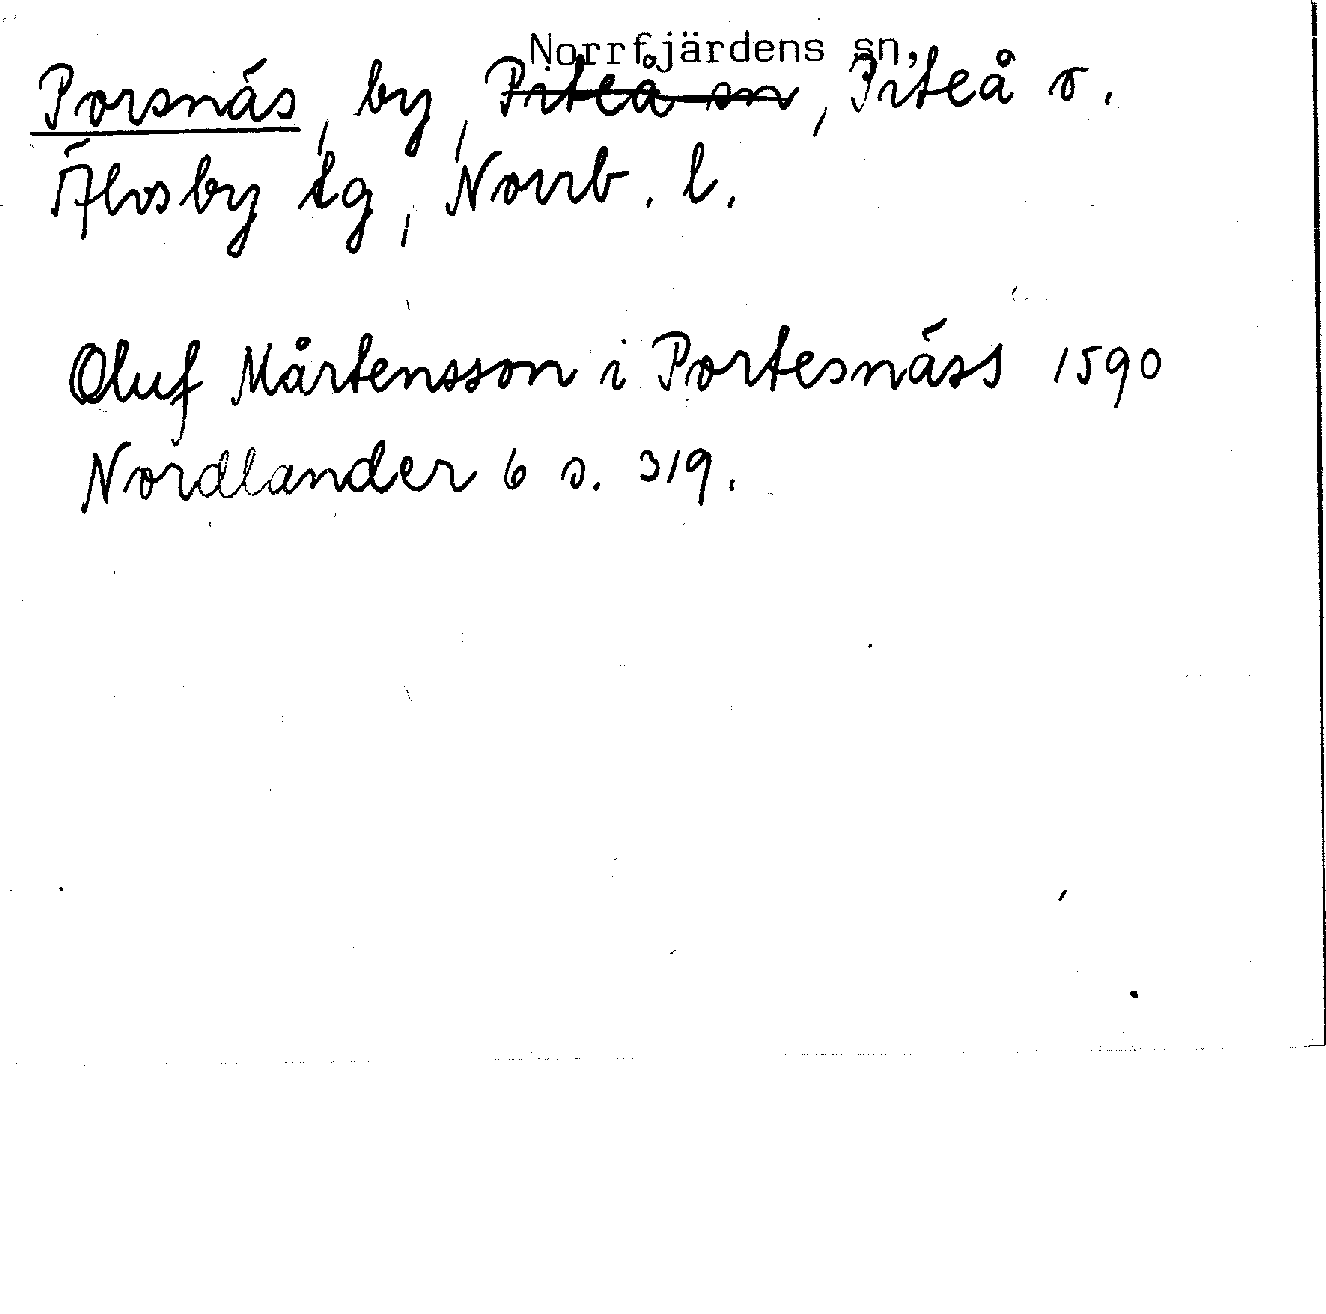 Norrfjärdens sn,
Porsnäs, by, Piteå sn, Piteå o.
Älvsby tg, Norrb. l.
Oluf Mårtensson i Portesnäss 1590
Nordlander 6 s. 319.